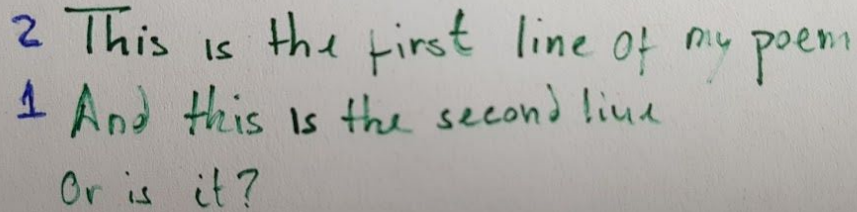 2 This is the first line of my poem
1 And this is the second line
Or is it?